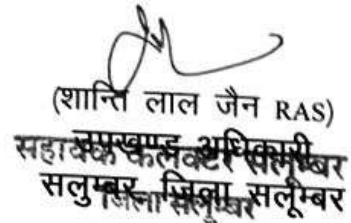 (शान्ति लाल जैन RAS)
उपखण्ड अधिकारी
सहायक कलक्टर सलूम्बर
सलुम्बर, जिला सलूम्बर
जिला सलूम्बर